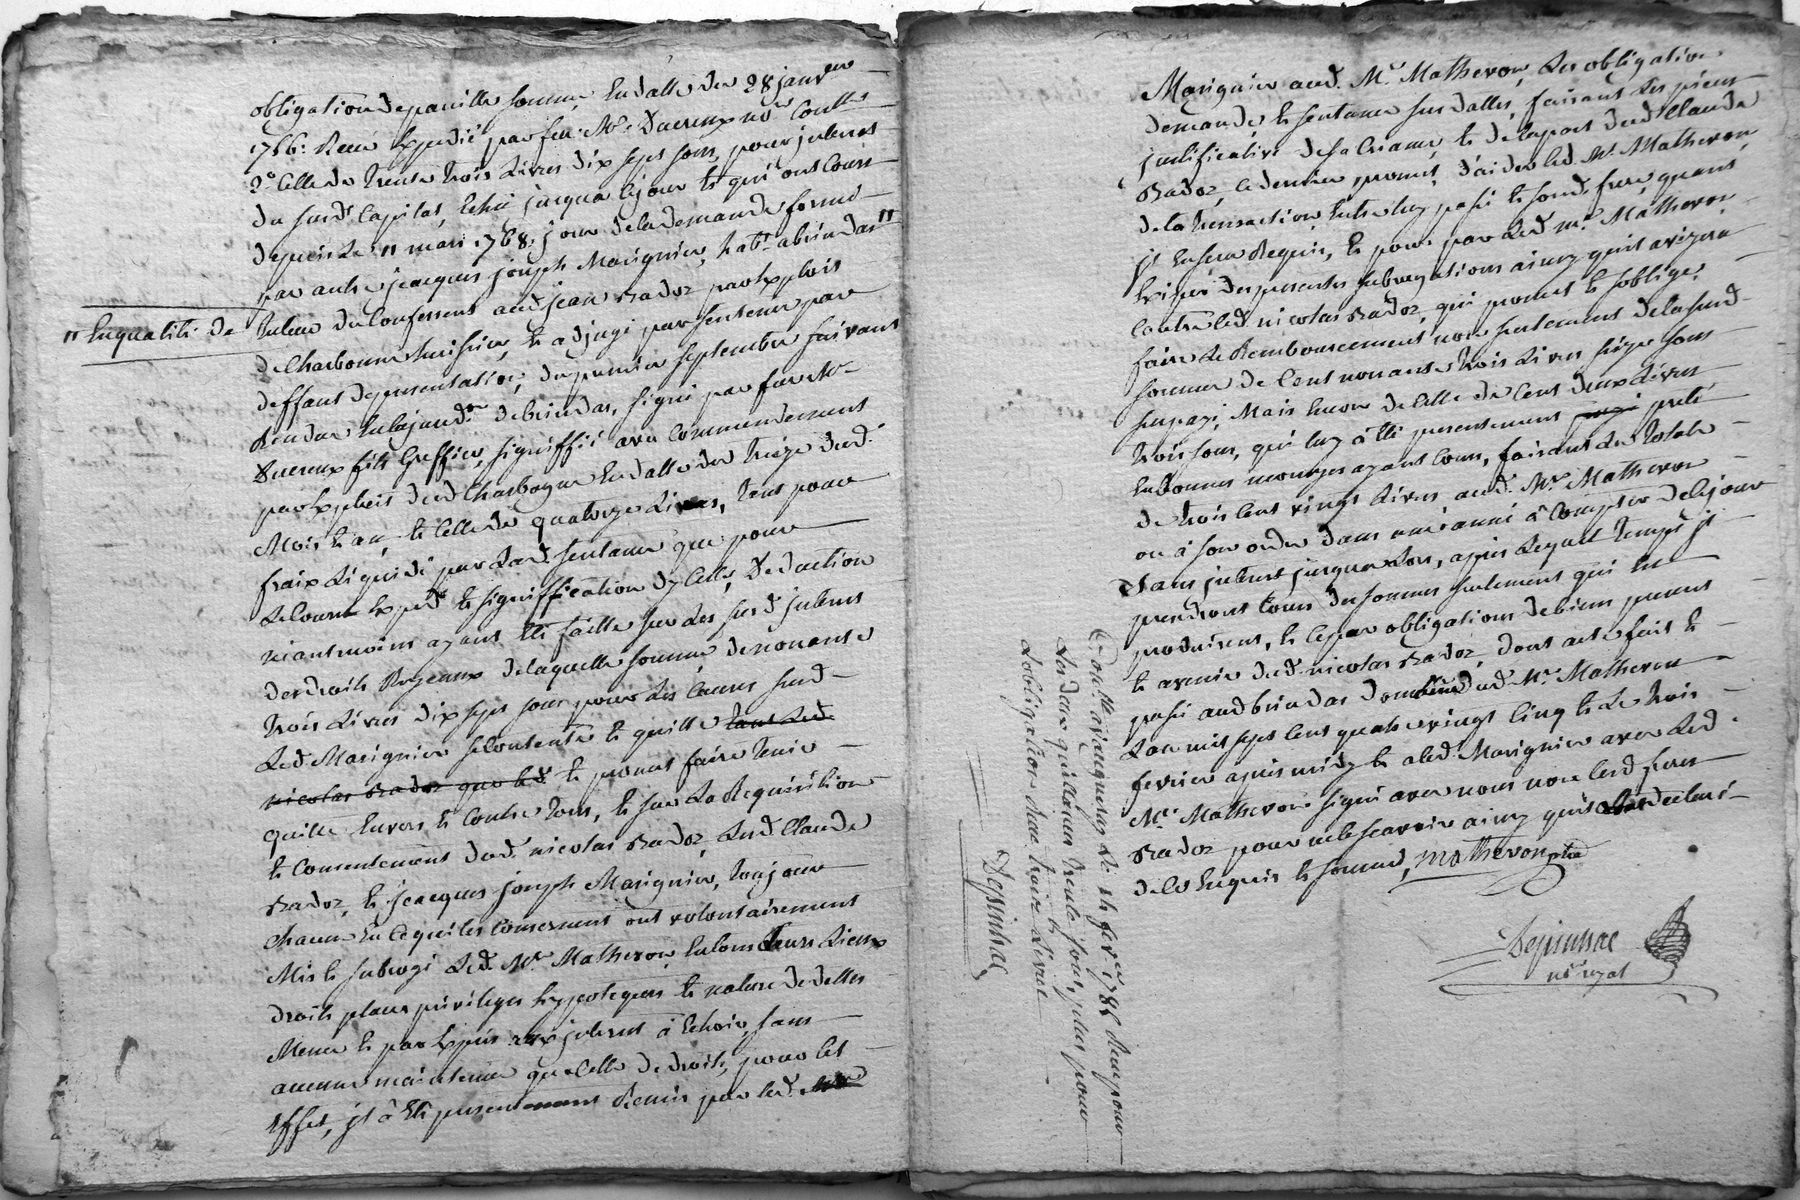 obligation de pareille somme, en datte du 28 janver
1756. Receu Expedié par feu Me Ducreux nore
2° celle de trente trois Livres dix sept sous, pour jnterest
du susdt Capital, Echu jusqua cejour et qui ont cours
depuis Le 11 mars 1768, jour delademande formé
par autre jacques joseph Marignier, habt. abrindas"
" Enqualité de
Tuteur du Confessent aud jean Badoz par Exploit
de Charbonne huissier, et adjugé par sentence par
deffaut de presentation, du premier septembre suivant
Rendue Enlajuridon debrindas, signée par furet
Ducreux fils Greffier, signiffié avec commendement
par Exploit dud Charbogne En datte du treize dud.
Mois et an, et celle de quatorze Livres, tant pour
fraix Liquidé par Lad sentence que pour
Lecours Expedon et signiffication dycelle, Deduction
neantmoins ayant Eté faitte sur Les susd jnterest
des droits Royeaux delaquelle somme denonante
trois Livres dix sept sous pour Les Causes susd -
Led Marignier secontente et quitte tant Led
nicolas Badoz que led et promet faire tenir -
quitte Envers et contre tous, et sur La Requisition
et Consentement dud. nicolas Badoz, Lud Claude
Badoz, et jacques joseph Marignier, toujour
chacun En cequi les concernent ont volontairement
Mis et subrogé Led. Me Matheron Enleurs Lieux
droits place privileges hypoteques et nature de dettes
Meme et par Exprès aux jnterest à Echoir, sans
aucune maintenue que celle de droits, pour cet -
Effet, jl à Eté presentement Remis par led.
Marignier aud. Me Matheron, Les obligation
demande, et sentence susdattés, faisant Les pieces
justificative desa Creance, et delapart dud Claude
Badoz, ce dernier promet, d'aider led Me Matheron
dela transaction Entre luy passé et sond. frere, quant
jl Ensera Requis, et pour par Led me. Matheron
Exiper des presentes subrogations ainsy quil avizera
Contre led. nicolas Badoz, qui promet et soblige,
faire Le Remboursement non seulement delasusd -
somme de Cent nonante trois Livres seize sous
susprix, Mais Encore de celle de Cent deux Livres
trois sous, qui luy à Eté presentement preté
En bonnes monoyes ayant cours, faisants Les totale -
de trois cent vingt Livres aud. Me Matheron -
ou à son ordre dans une année à Compter de cejour
sans jnterest jusqua lors, après Lequel temps jl -
prendront Cours des sommes seulement qui En -
produisent, et cepar obligations debiens presens -
et avenir dud. nicolas Badoz, dont acte fait et -
passé aud brindas domicille dud Me Matheron -
Lan mil sept Cent quatre vingt Cinq et Le trois -
fevrier après midy et aled. Marignier avec Led -
Me Matheron signé avec nous non lesd freres
Badoz pour nele scavoir ainsy quils ont declaré -
de ce Enquis et sommé, Matheron ptre
Depinhac
nre royal
Con.lle aVaugneray Le 14 fevr. 1785 Receu pour
Les deux quittances trente sous, plus pour
Lobligation une Livre
Depinhac